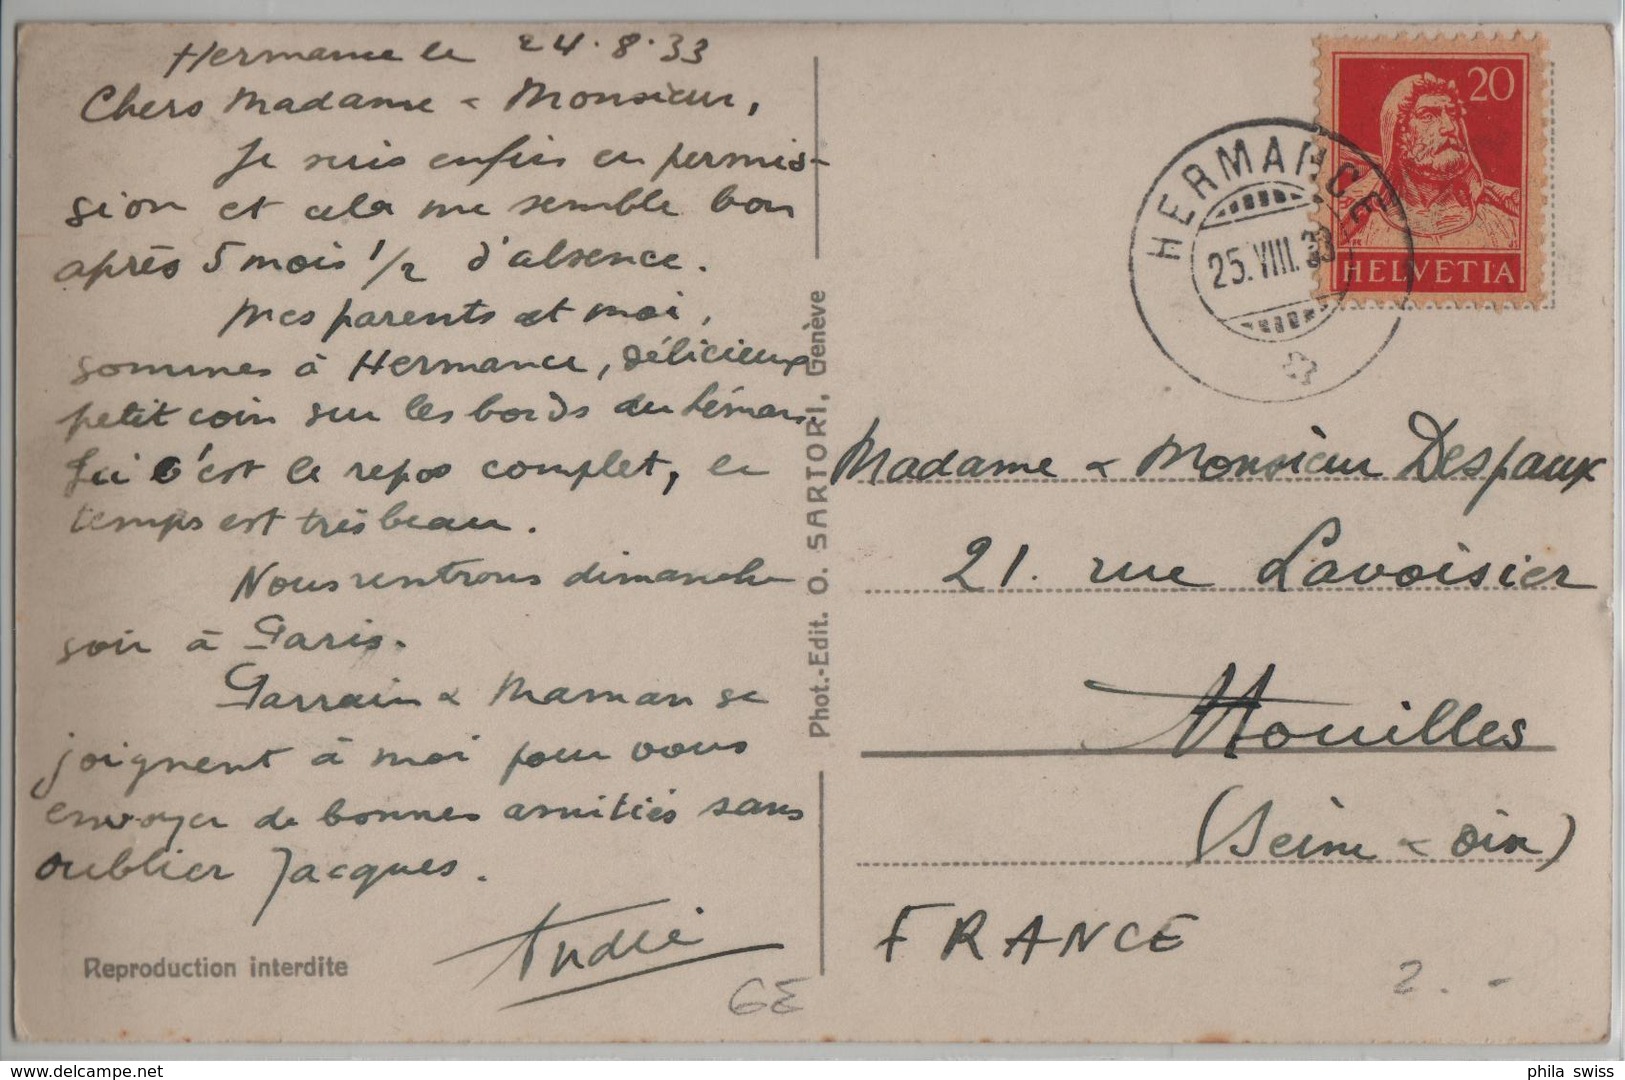 Hermance le 24.8.33
Chers Madame & Monsieur,
Je suis enfin en permis-
sion et cela me semble bon
après 5 mois 1/2 d'absence.
Mes parents et moi,
sommes à Hermance, délicieux
petit coin sur les bords du Léman.
Ici c'est le repos complet, le
temps est très beau.
Nous rentrons dimanche
soir à Paris.
Parrain & Maman se
joignent à moi pour vous
envoyer de bonnes amitiés sans
oublier Jacques.
André
Reproduction interdite
GE
Phot.-Edit. O. SARTORI, Genève
20
HELVETIA
HERMANCE
25.VIII.33
Madame & Monsieur Despaux
21. rue Lavoisier
Houilles
(Seine & Oise)
FRANCE
2.-
phila swiss